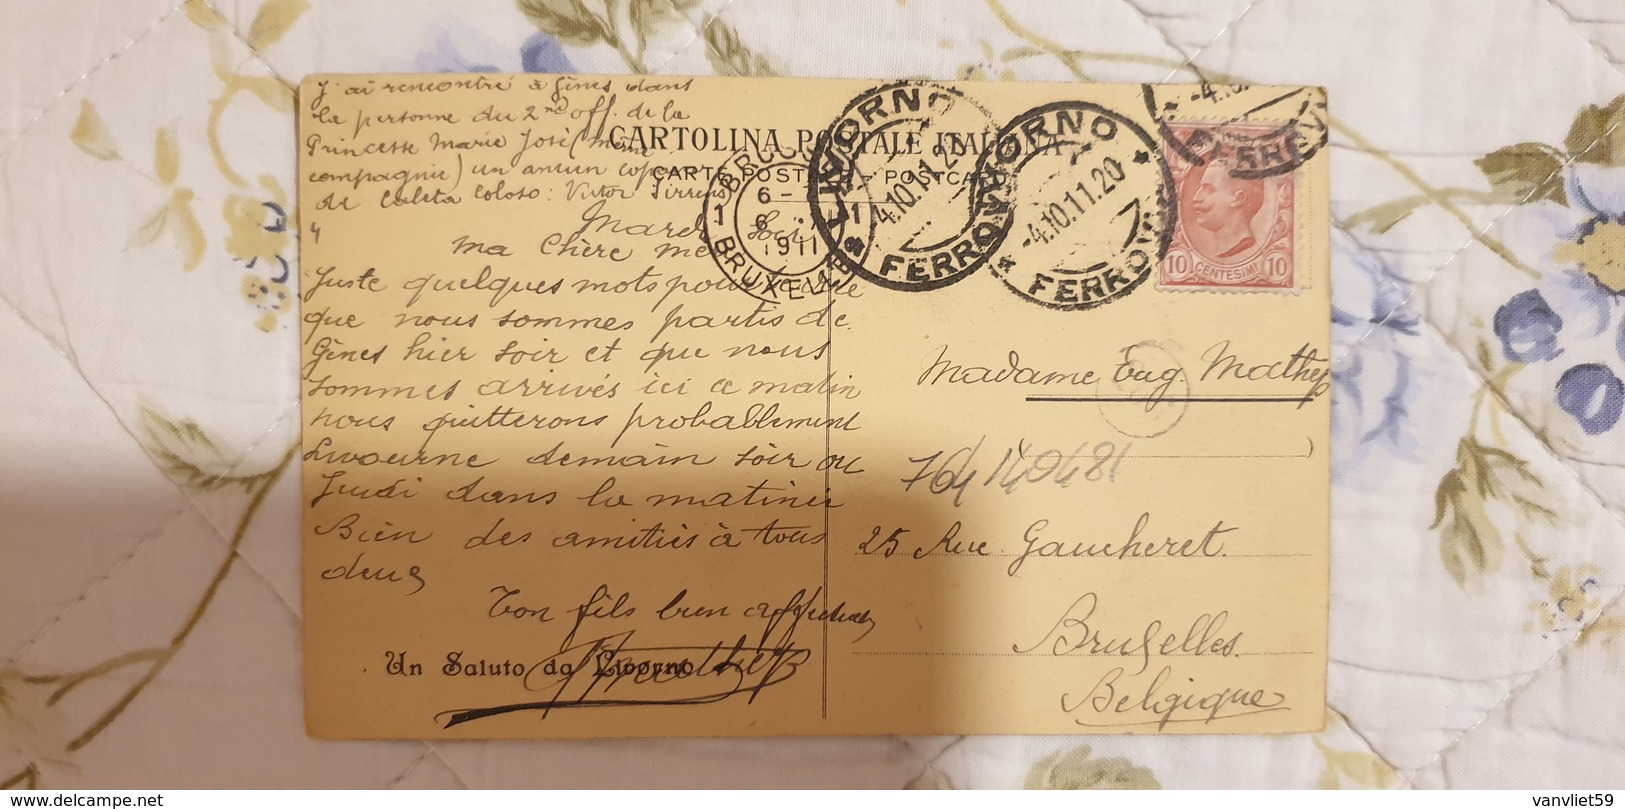 J'ai rencontré à Gênes dans
la personne du 2nd off. de la
Princesse Marie José (même
compagnie) un ancien
de Caleta Coloso: Victor
CARTOLINA POSTALE ITALIANA
CARTE POSTALE - POSTCARD
LIVORNO
FERROVIA
-4.10.11.20
LIVORNO
FERROVIA
-4.10.11.20
-4.10.
FERROVIA
1 1
6-
6
1911
BRUXELLES
10 CENTESIMI 10
Mardi Soir
Ma Chère
Juste quelques mots pour te dire
que nous sommes partis de
Gênes hier soir et que nous
sommes arrivés ici ce matin
nous quitterons probablement
Livourne demain soir ou
Jeudi dans la matinée
Bien des amitiés à tous
deux
Ton fils bien affectueux
Un Saluto da Livorno
Madame Eug. Mathey
764 140481
25 Rue Gaucheret.
Bruxelles.
Belgique
vanvliet59